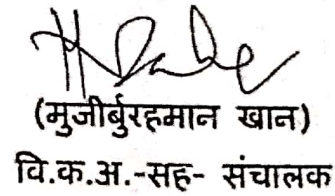 (मुजीर्बुरहमान खान)
वि.क.अ.-सह- संचालक